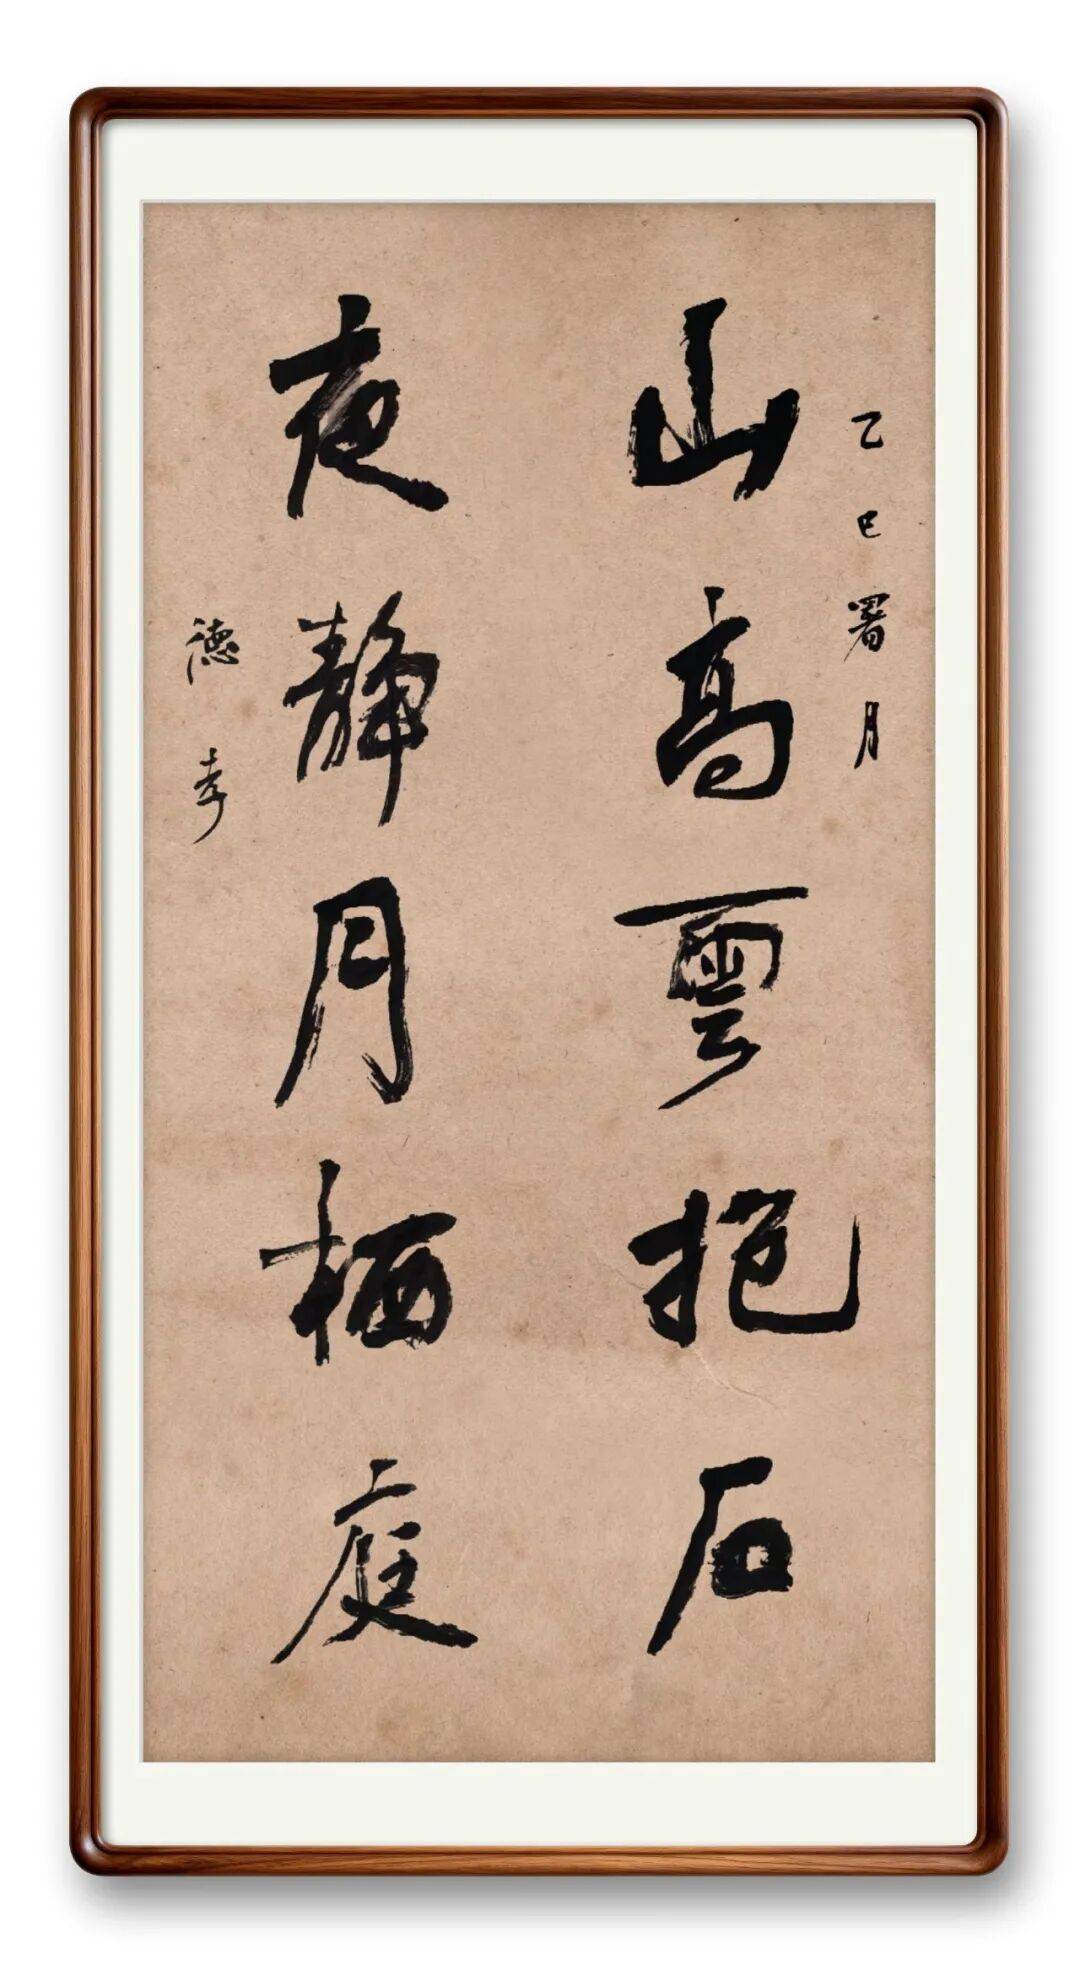 乙巳署月
山高雲抱石
夜靜月栖庭
德孝